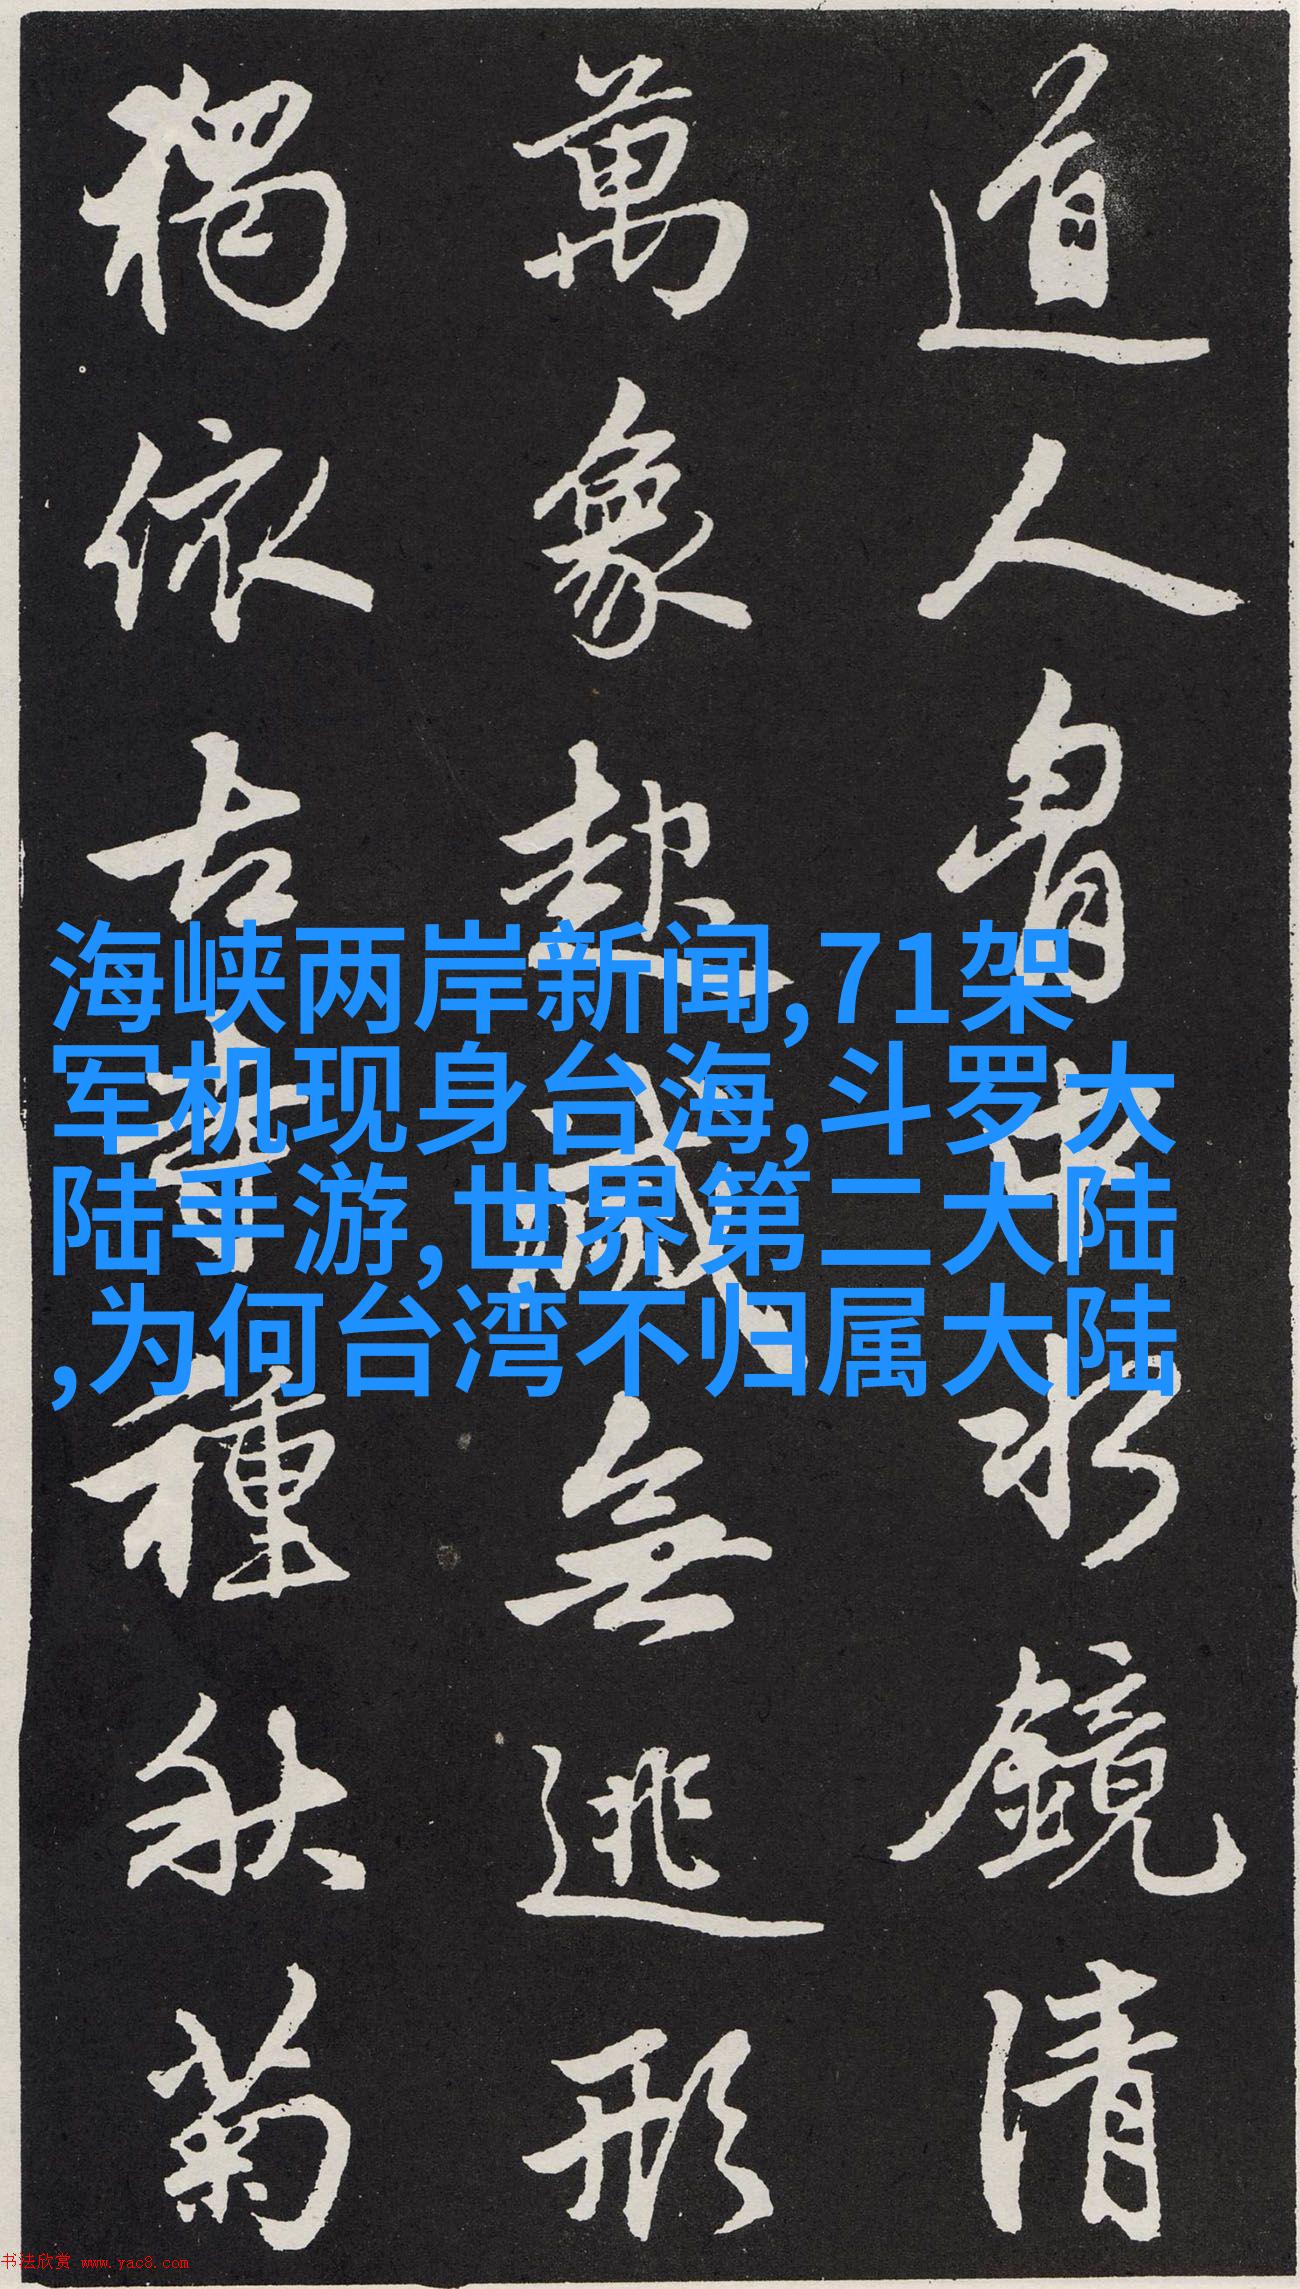 道人胷中水鏡清
萬象起滅無逃形
獨依古寺種秋菊
海峡两岸新闻,71架
军机现身台海,斗罗大
陆手游,世界第二大陆
,为何台湾不归属大陆
书法欣赏 www.yac8.com